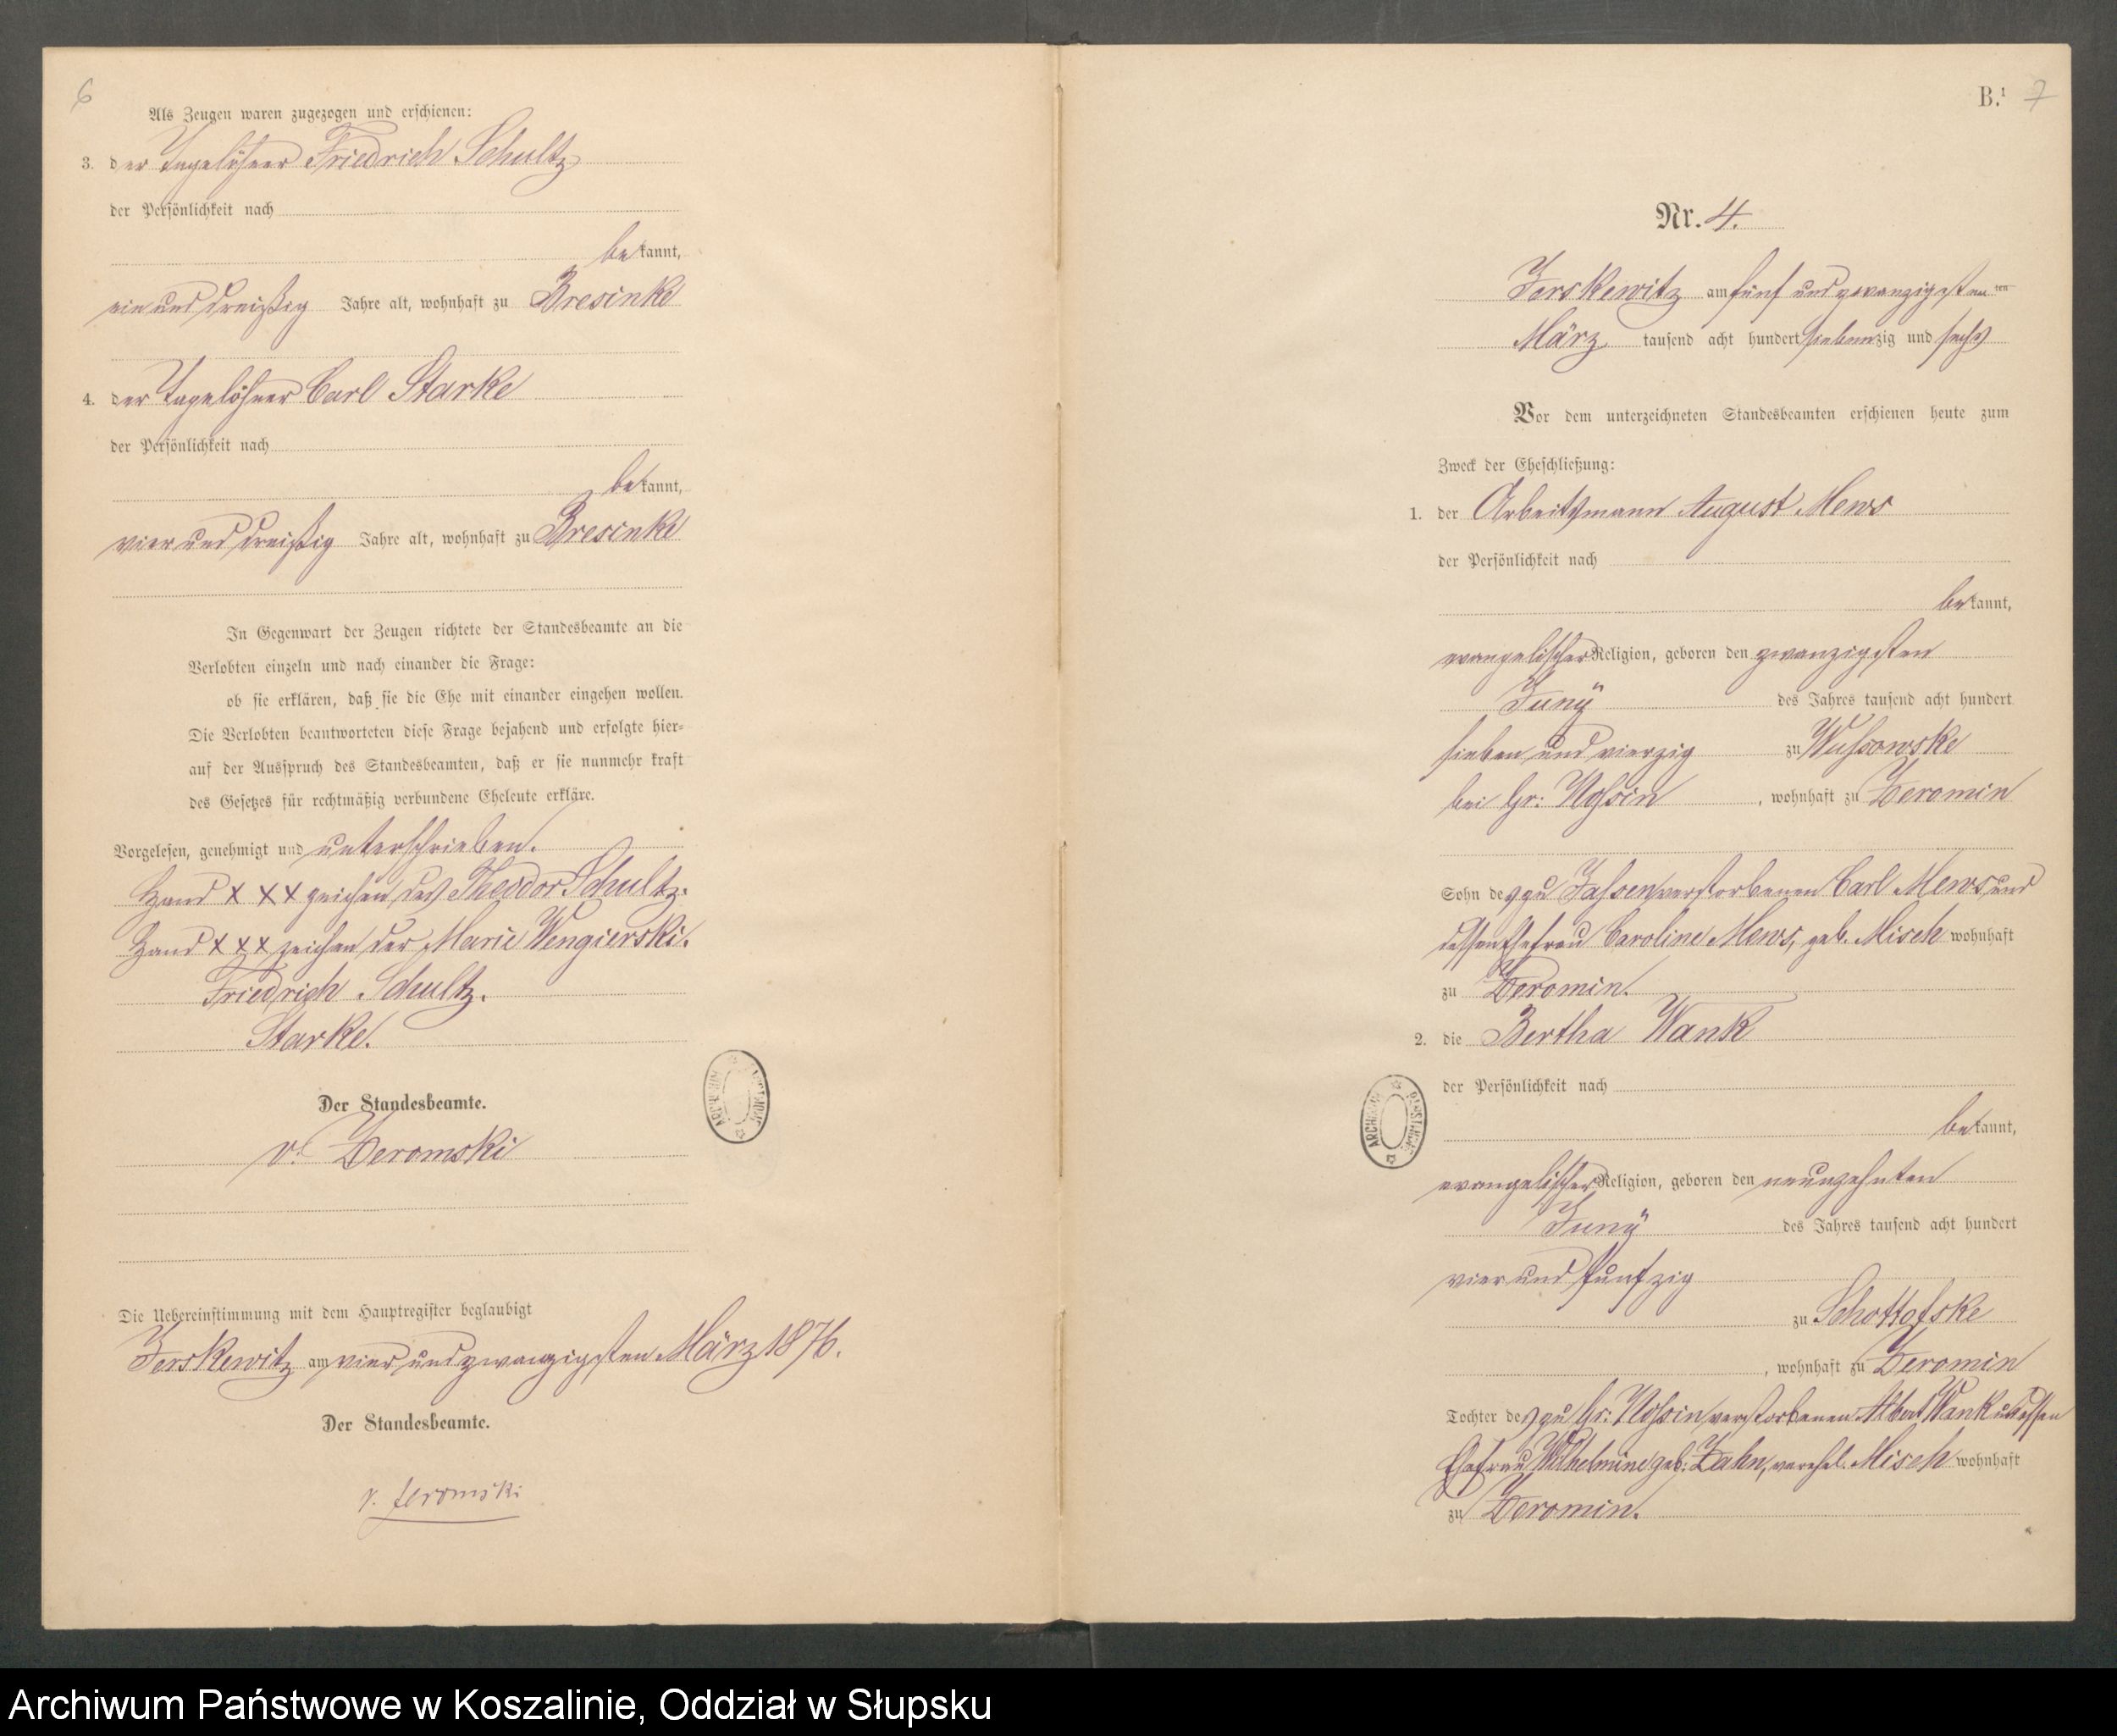 6
Als Zeugen waren zugezogen und erschienen:
3. der Tagelöhner Friedrich Schultz
der Persönlichkeit nach
bekannt,
ein und dreißig Jahre alt, wohnhaft zu Bresinke
4. der Tagelöhner Carl Starke
der Persönlichkeit nach
bekannt,
vier und dreißig Jahre alt, wohnhaft zu Bresinke
In Gegenwart der Zeugen richtete der Standesbeamte an die
Verlobten einzeln und nach einander die Frage:
ob sie erklären, daß sie die Ehe mit einander eingehen wollen.
Die Verlobten beantworteten diese Frage bejahend und erfolgte hier-
auf der Ausspruch des Standesbeamten, daß er sie nunmehr kraft
des Gesetzes für rechtmäßig verbundene Eheleute erkläre.
Vorgelesen, genehmigt und unterschrieben.
Hand XXX zeichen des Theodor Schultz.
Hand XXX zeichen der Marie Wengierski.
Friedrich Schultz.
Starke.
Der Standesbeamte.
v. Zeromski
Die Uebereinstimmung mit dem Hauptregister beglaubigt
Jerskewitz am vier und zwanzigsten März 1876.
Der Standesbeamte.
v. Zeromski
ARCHIWUM
B.¹ 7
Nr. 4.
Jerskewitz am fünf und zwanzigsten ten
März tausend acht hundert siebenzig und sechs
Vor dem unterzeichneten Standesbeamten erschienen heute zum
Zweck der Eheschließung:
1. der Arbeitsmann August Mews
der Persönlichkeit nach
bekannt,
evangelischer Religion, geboren den zwanzigsten
Juny des Jahres tausend acht hundert
sieben und vierzig zu Wussowske
bei Gr: Nossin, wohnhaft zu Zeromin
Sohn des zu Jassen verstorbenen Carl Mews und
dessen Ehefrau Caroline Mews, geb. Misch wohnhaft
zu Zeromin.
2. die Bertha Wank
der Persönlichkeit nach
bekannt,
ARCHIWUM
evangelischer Religion, geboren den neunzehnten
Juny des Jahres tausend acht hundert
vier und funfzig
zu Schottofske
, wohnhaft zu Zeromin
Tochter des zu Gr: Nossin verstorbenen Albert Wank u dessen
Ehefrau Wilhelmine geb: Zahn, verehel. Misch wohnhaft
zu Zeromin.
Archiwum Państwowe w Koszalinie, Oddział w Słupsku